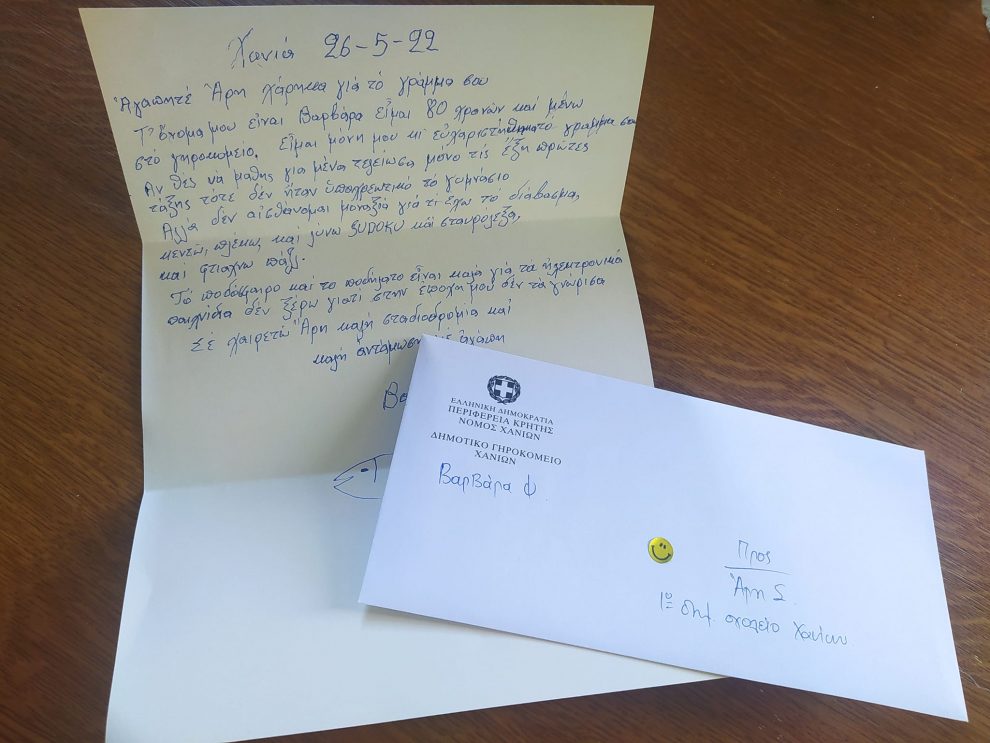 Χανιά 26-5-22
Ἀγαπητέ Ἄρη χάρηκα γιά τό γράμμα σου
Τ' ὄνομα μου εἶναι Βαρβάρα εἶμαι 80 χρονών καί μένω
στό γηροκομεῖο. Εἶμαι μόνη μου κι εὐχαριστήθηκα τό γράμμα σου
Αν θες νά μάθης για μένα τελείωσα μόνο τίς ἕξη πρῶτες
τάξης τότε δέν ἦταν ὑποχρεωτικό τό γυμνάσιο
Αλλά δέν αἰσθάνομαι μοναξιά γιά τι ἔχω τό διάβασμα,
κεντῶ, πλέκω, καί λύνω SUDOKU καί σταυρόλεξα,
καί φτιάχνω πάζλ.
Τό ποδόσφαιρο καί το ποδήλατο εἶναι καλά γιά τά ἠλεκτρονικά
παιχνίδια δέν ξέρω γιατί στην ἐποχή μου δέν τά γνώρισα
Σέ χαιρετῶ Ἄρη καλή σταδιοδρομία καί
καλή ἀντάμωση ἀγάπη
ΕΛΛΗΝΙΚΗ ΔΗΜΟΚΡΑΤΙΑ
ΠΕΡΙΦΕΡΕΙΑ ΚΡΗΤΗΣ
ΝΟΜΟΣ ΧΑΝΙΩΝ
ΔΗΜΟΤΙΚΟ ΓΗΡΟΚΟΜΕΙΟ
ΧΑΝΙΩΝ
Βαρβάρα Φ.
Προς
Ἄρη Σ.
1ο δημ. σχολείο Χανίων